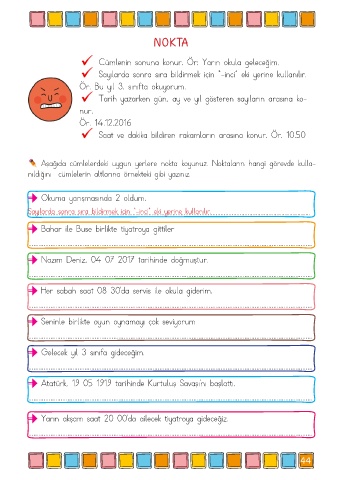 NOKTA
Cümlenin sonuna konur. Ör: Yarın okula geleceğim.
Sayılarda sonra sıra bildirmek için "-inci" eki yerine kullanılır.
Ör. Bu yıl 3. sınıfta okuyorum.
Tarih yazarken gün, ay ve yıl gösteren sayıların arasına ko-
nur.
Ör. 14.12.2016
Saat ve dakika bildiren rakamların arasına konur. Ör. 10.50
Aşağıda cümlelerdeki uygun yerlere nokta koyunuz. Noktaların hangi görevde kulla-
nıldığını cümlelerin altlarına örnekteki gibi yazınız.
Okuma yarışmasında 2. oldum.
Sayılarda sonra sıra bildirmek için "-inci" eki yerine kullanılır.
Bahar ile Buse birlikte tiyatroya gittiler
Nazım Deniz, 04 07 2017 tarihinde doğmuştur.
Her sabah saat 08 30'da servis ile okula giderim.
Seninle birlikte oyun oynamayı çok seviyorum
Gelecek yıl 3 sınıfa gideceğim.
Atatürk, 19 05 1919 tarihinde Kurtuluş Savaşını başlattı.
Yarın akşam saat 20 00'da ailecek tiyatroya gideceğiz.
44